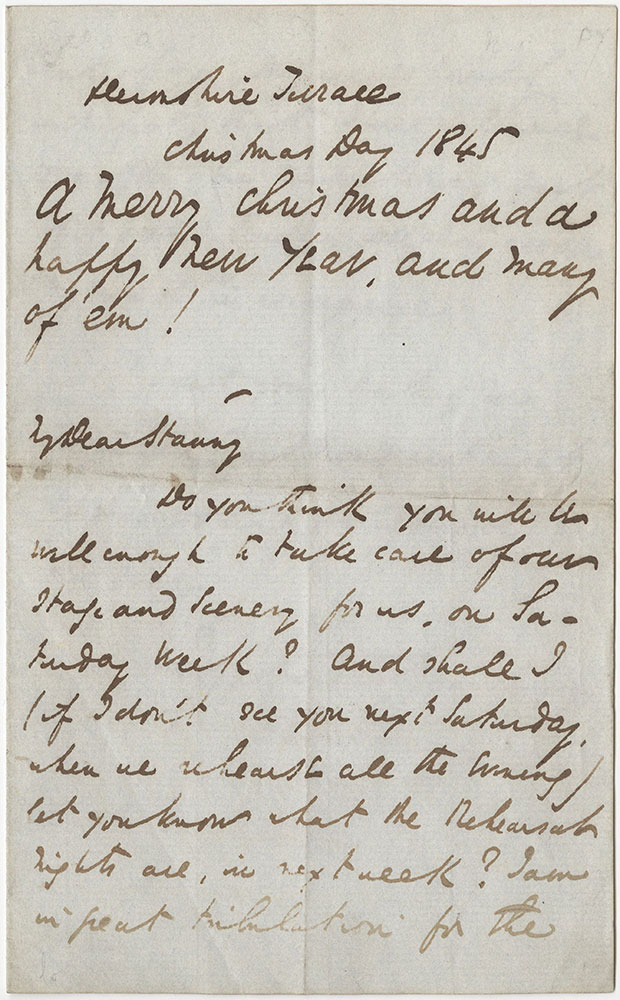 Devonshire Terrace
Christmas Day 1845
A merry christmas and a
happy New Year, and many
of 'em!
My Dear Stanny
Do you think you will be
well enough to take care of our
Stage and Scenery for us, on Sa-
turday Week? And shall I
(if I don't see you next Saturday,
when we rehearse all the Evening)
let you know what the Rehearsal
nights are, in next week? I am
in great tribulation for the